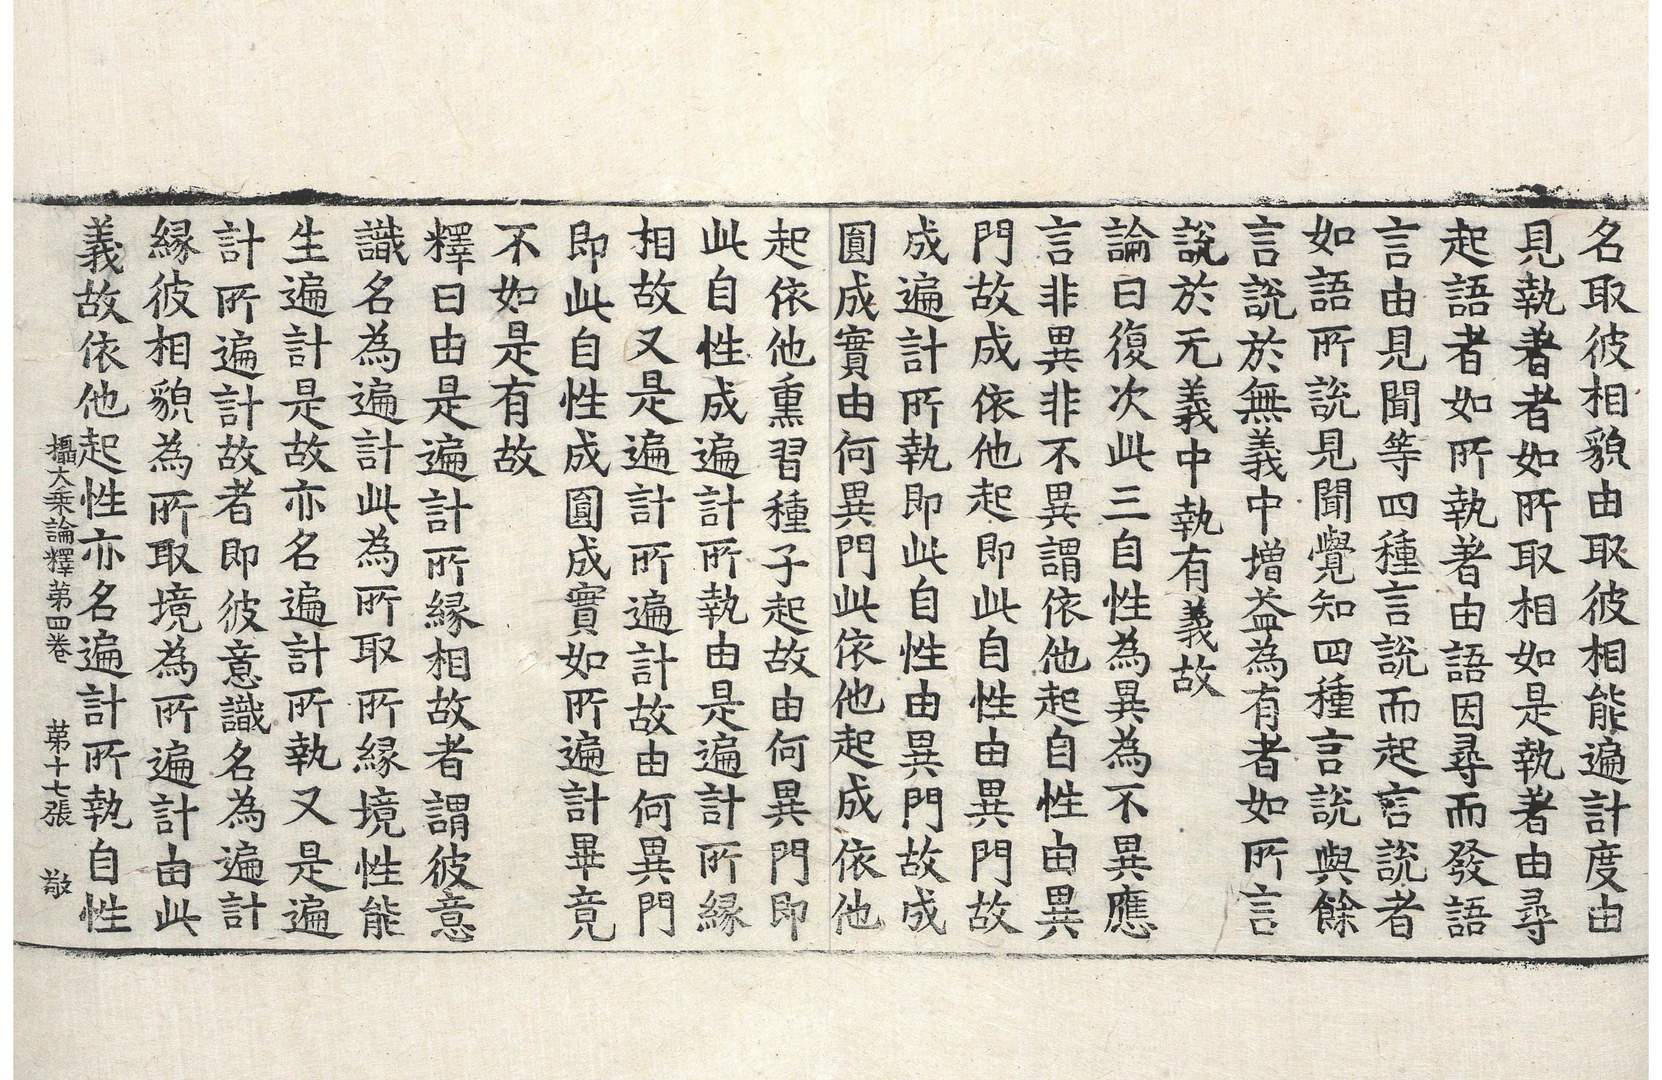 名取彼相貌由取彼相能遍計度由
見執著者如所取相如是執著由尋
起語者如所執著由語因尋而發語
言由見聞等四種言說而起言說者
如語所說見聞覺知四種言說與餘
言說於無義中增益為有者如所言
說於无義中執有義故
論曰復次此三自性為異為不異應
言非異非不異謂依他起自性由異
門故成依他起即此自性由異門故
成遍計所執即此自性由異門故成
圓成實由何異門此依他起成依他
起依他熏習種子起故由何異門即
此自性成遍計所執由是遍計所緣
相故又是遍計所遍計故由何異門
即此自性成圓成實如所遍計畢竟
不如是有故
釋曰由是遍計所緣相故者謂彼意
識名為遍計此為所取所緣境性能
生遍計是故亦名遍計所執又是遍
計所遍計故者即彼意識名為遍計
緣彼相貌為所取境為所遍計由此
義故依他起性亦名遍計所執自性
攝大乘論釋第四卷 第十七張 敬